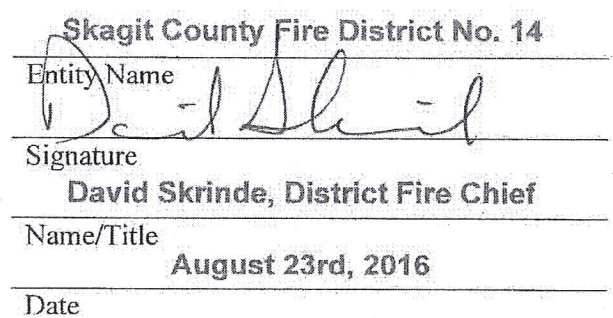 Skagit County Fire District No. 14
Entity Name
David Skrinde
Signature
David Skrinde, District Fire Chief
Name/Title
August 23rd, 2016
Date